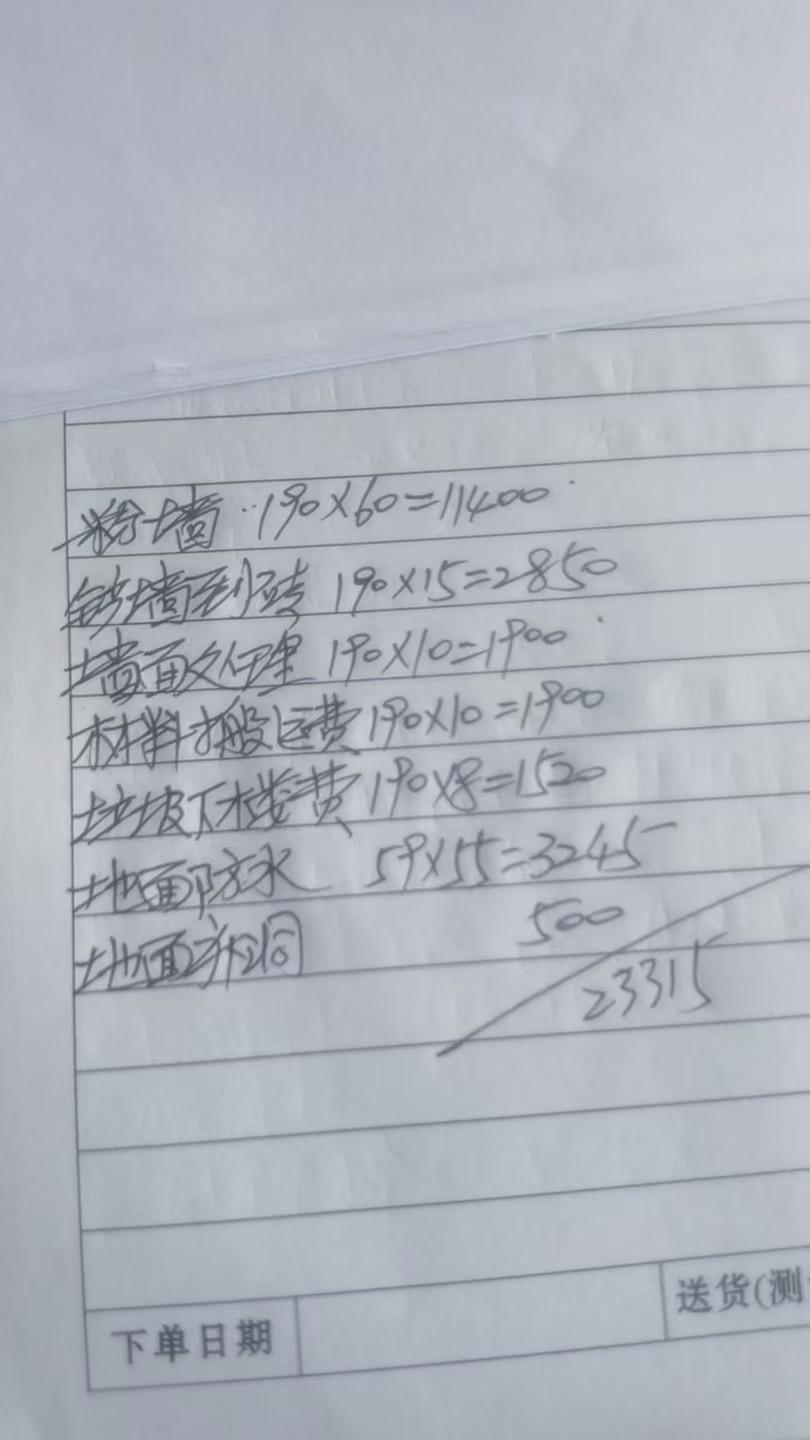 粉墙 190×60=11400
铲墙到砖 190×15=2850
墙面处理 190×10=1900
材料搬运费 190×10=1900
垃圾下楼费 190×8=1520
地面防水 59×55=3245
地面补洞 500
23315
下单日期
送货(测